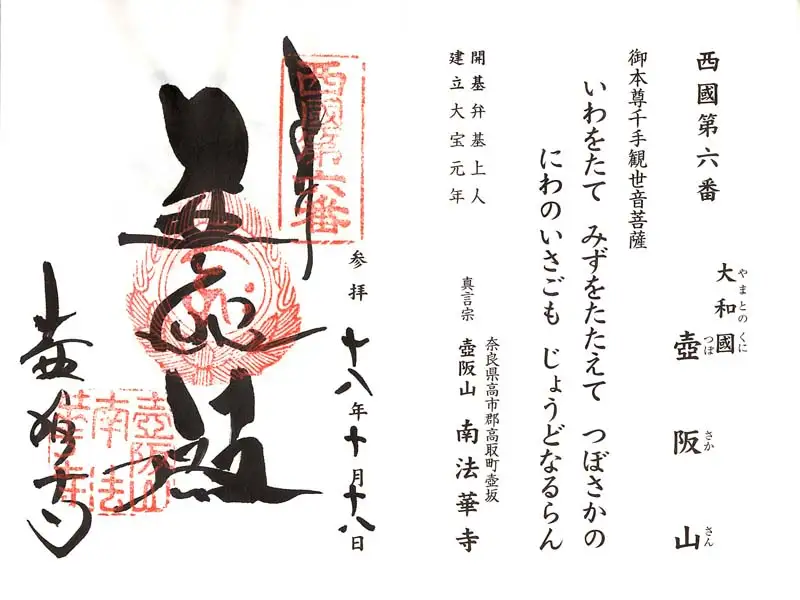 西國第六番
やまとの くに
大和國
つぼ さか さん
壺阪山
御本尊千手観世音菩薩
いわをたて みずをたたえて つぼさかの
にわのいさごも じょうどなるらん
開基弁基上人
建立大宝元年
奈良県高市郡高取町壺坂
真言宗 壺阪山 南法華寺
参拝 十八年十月十八日
西國第六番
壺阪山
南法
華寺
壺阪寺